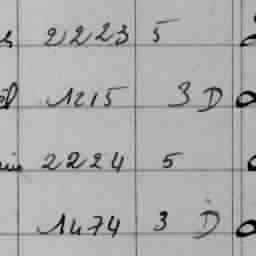 2223 5
1215 3 D
2224 5
1474 3 D